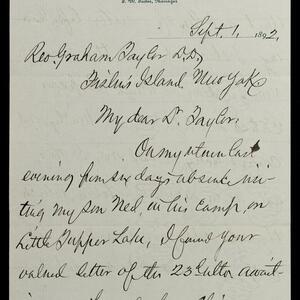 Sept. 1, 1892.
Rev. Graham Taylor D.D.,
Fisher's Island New York
My dear Dr. Taylor:
On my return last
evening from six days absence visi-
ting my son Ned in his camp, on
Little Tupper Lake, I found your
valued letter of the 23d ulto await-